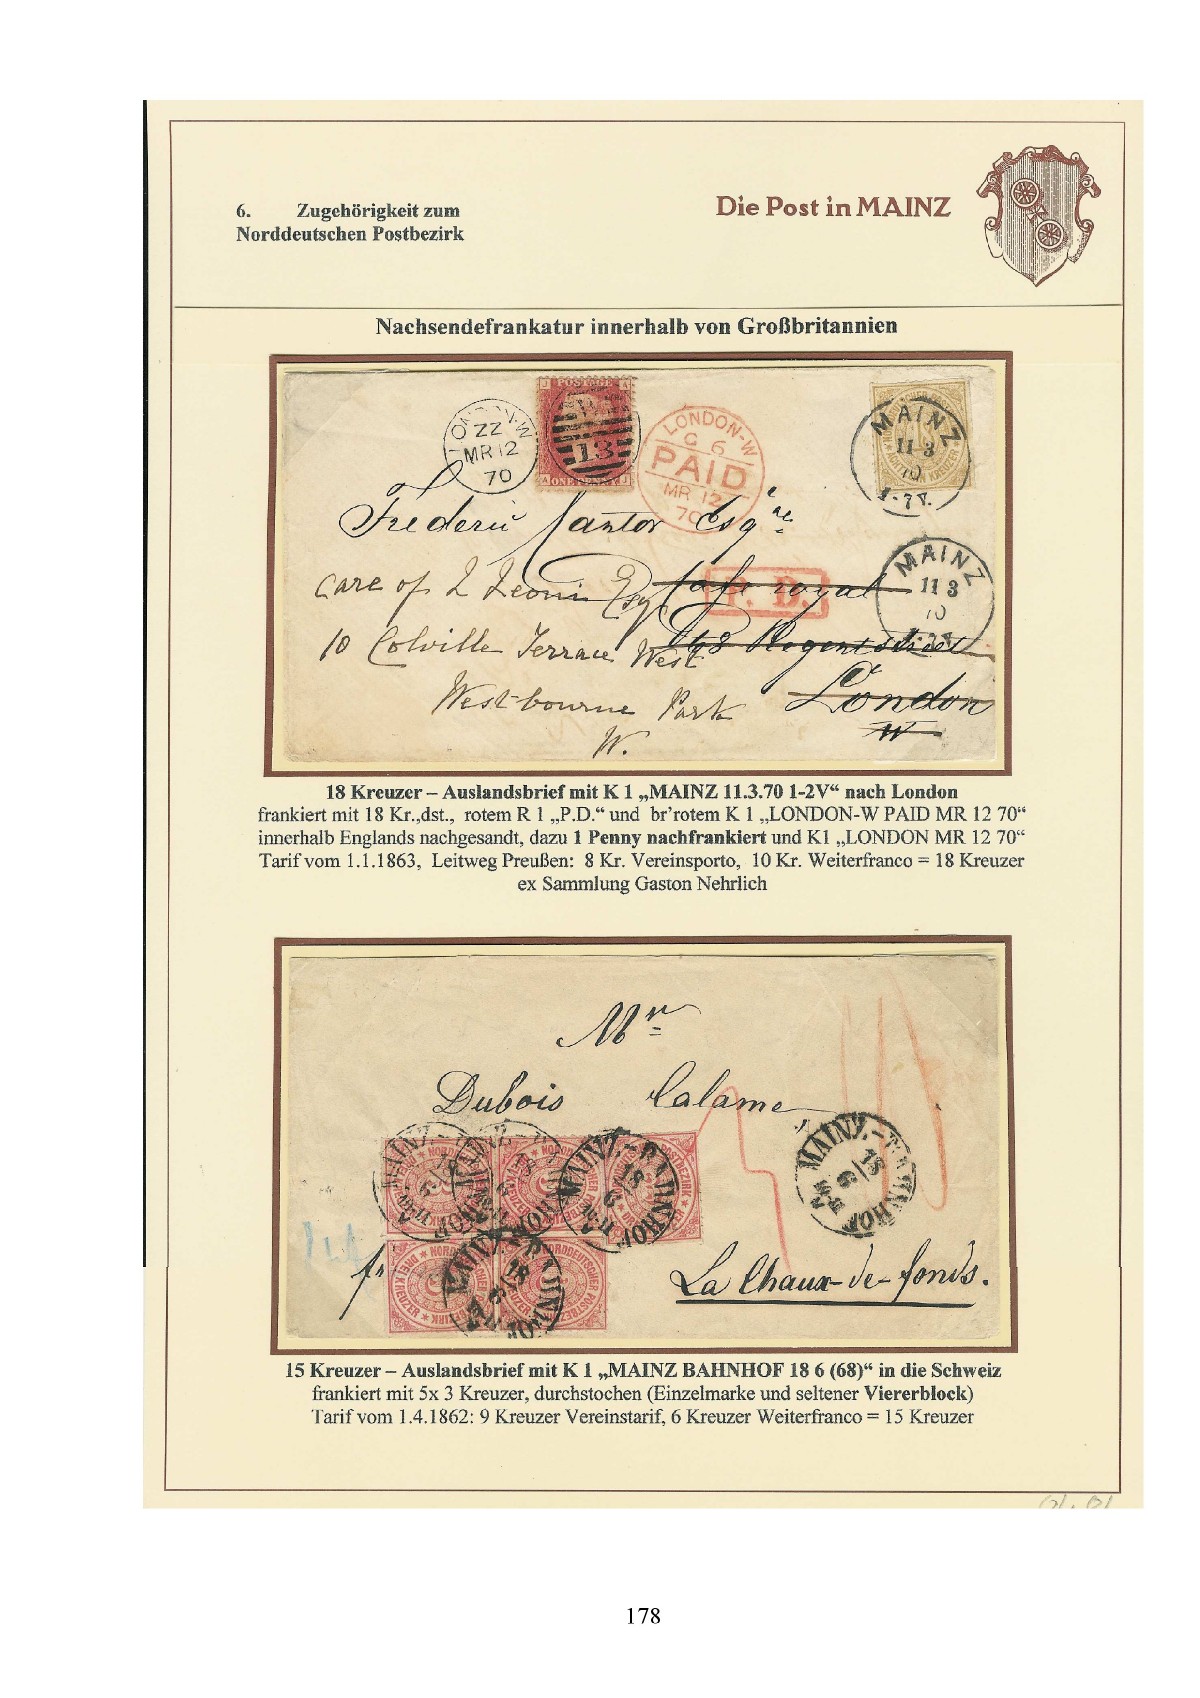 6. Zugehörigkeit zum
Norddeutschen Postbezirk
Die Post in MAINZ
Nachsendefrankatur innerhalb von Großbritannien
LONDON-W
ZZ
MR 12
70
J POSTAGE A
13
A ONE PENNY J
LONDON-W
G 6
PAID
MR 12
70
MAINZ
11 3
70
1-2 V.
KREUZER
Esqre
care of
Esq
Café royal
P. D.
MAINZ
11 3
70
1-2 V.
10 Colville Terrace West
68 Regent street
Westbourne Park
London
W.
W
18 Kreuzer – Auslandsbrief mit K 1 „MAINZ 11.3.70 1-2V“ nach London
frankiert mit 18 Kr.,dst., rotem R 1 „P.D.“ und br'rotem K 1 „LONDON-W PAID MR 12 70“
innerhalb Englands nachgesandt, dazu 1 Penny nachfrankiert und K1 „LONDON MR 12 70“
Tarif vom 1.1.1863, Leitweg Preußen: 8 Kr. Vereinsporto, 10 Kr. Weiterfranco = 18 Kreuzer
ex Sammlung Gaston Nehrlich
Mr
Dubois Calame
MAINZ-BAHNHOF
18/6
MAINZ-BAHNHOF
18/6
NORDDEUTSCHER POSTBEZIRK
DREI KREUZER
fr
La Chaux-de-fonds.
15 Kreuzer – Auslandsbrief mit K 1 „MAINZ BAHNHOF 18 6 (68)“ in die Schweiz
frankiert mit 5x 3 Kreuzer, durchstochen (Einzelmarke und seltener Viererblock)
Tarif vom 1.4.1862: 9 Kreuzer Vereinstarif, 6 Kreuzer Weiterfranco = 15 Kreuzer
178